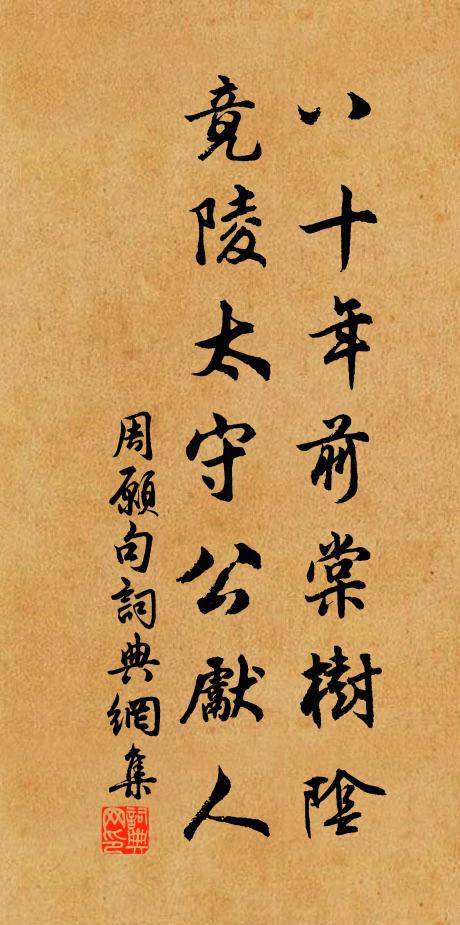 八十年前棠樹陰
竟陵太守公獻人
周願句詞典網集
詞典网印